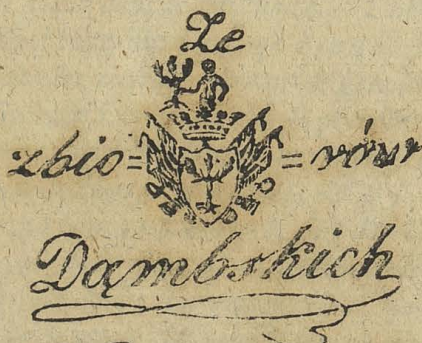 Ze
zbio= =rów
Dąmbskich